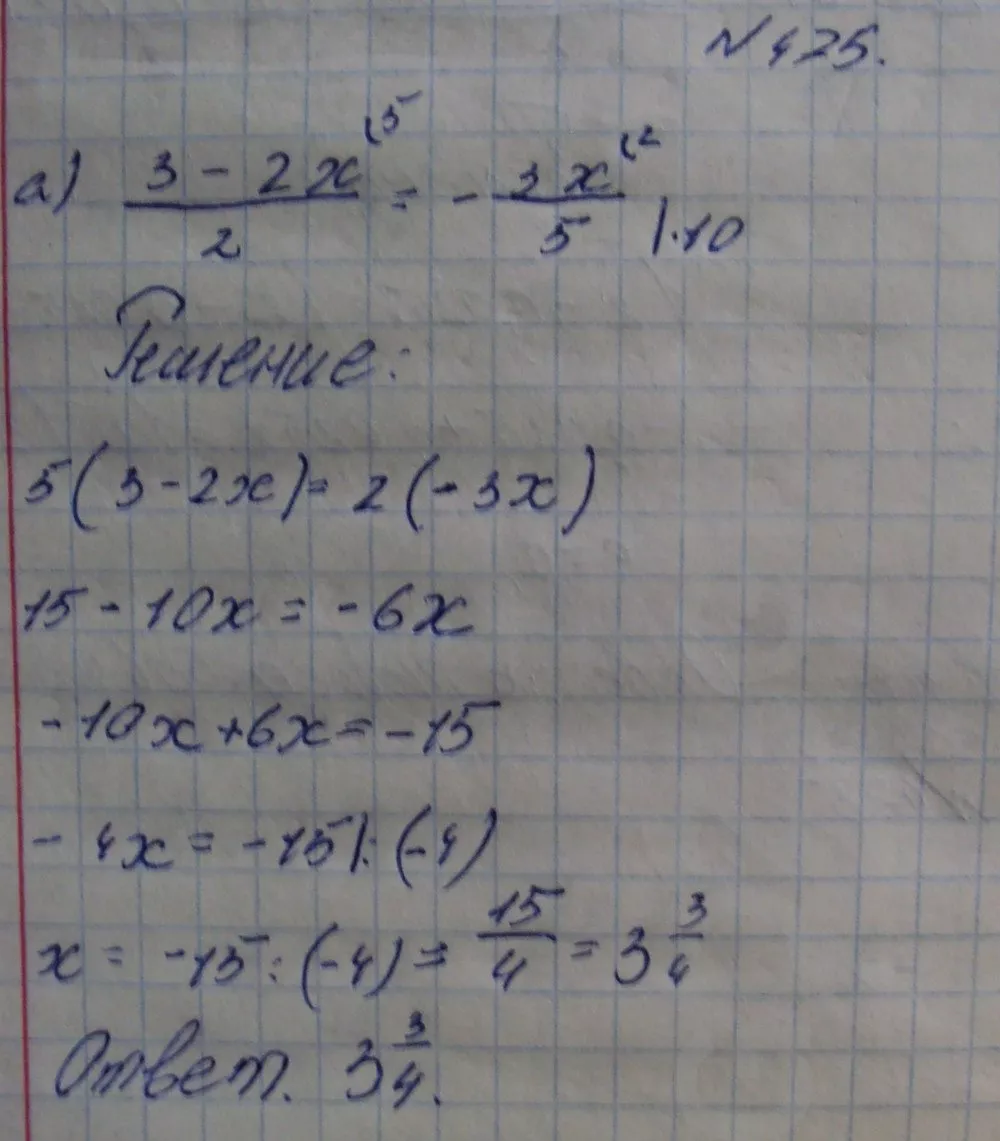 № 425.
а) (3 - 2x)/2 ⁽⁵ = - 3x/5 ⁽² | · 10
Решение:
5(3 - 2x) = 2(-3x)
15 - 10x = -6x
-10x + 6x = -15
-4x = -15 | : (-4)
x = -15 : (-4) = 15/4 = 3 3/4
Ответ. 3 3/4.